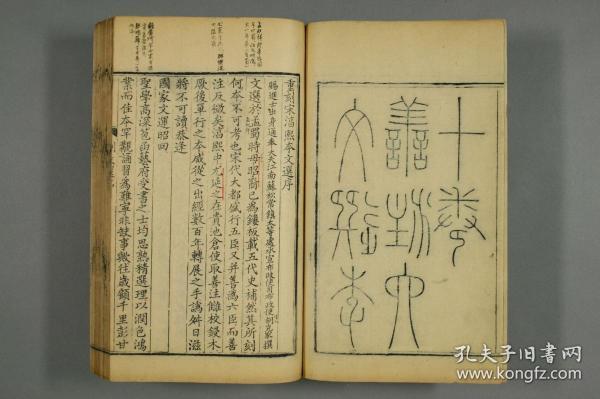 文選李
善注六
十卷
重刻宋淳熙本文選序
賜進士出身通奉大夫江南蘇松常鎮太等處承宣布政使司布政使胡克家撰
文選於孟蜀時毋昭裔已為鏤板載五代史補然其所刻
何本不可考也宋代大都盛行五臣又并善為六臣而善
注反微矣淳熙中尤延之在貴池倉使取善注讎校鋟木
厥後單行之本咸從之出經數百年轉展之手譌舛日滋
將不可讀恭逢
國家文運昭回
聖學高深苞函藝府受書之士均思熟精選理以潤色鴻
業而佳本罕覯誦習為難寧非缺事歟往歲顧千里彭甘
孔夫子旧书网
www.kongfz.com